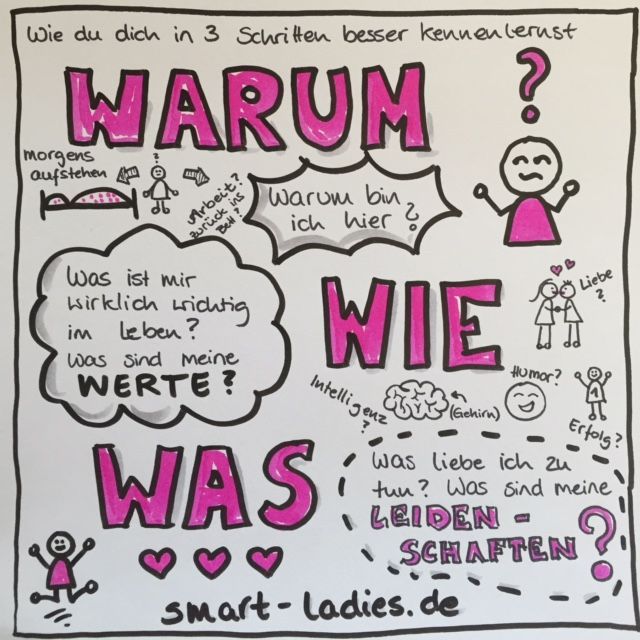 Wie du dich in 3 Schritten besser kennenlernst
WARUM
?
morgens
aufstehen
?
Arbeit?
zurück ins
Bett?
Warum bin
ich hier?
Was ist mir
wirklich wichtig
im Leben?
Was sind meine
WERTE?
WIE
Liebe
?
Intelligenz
?
(Gehirn)
Humor?
1
Erfolg?
WAS
Was liebe ich zu
tun? Was sind meine
LEIDEN-
SCHAFTEN?
smart-ladies.de